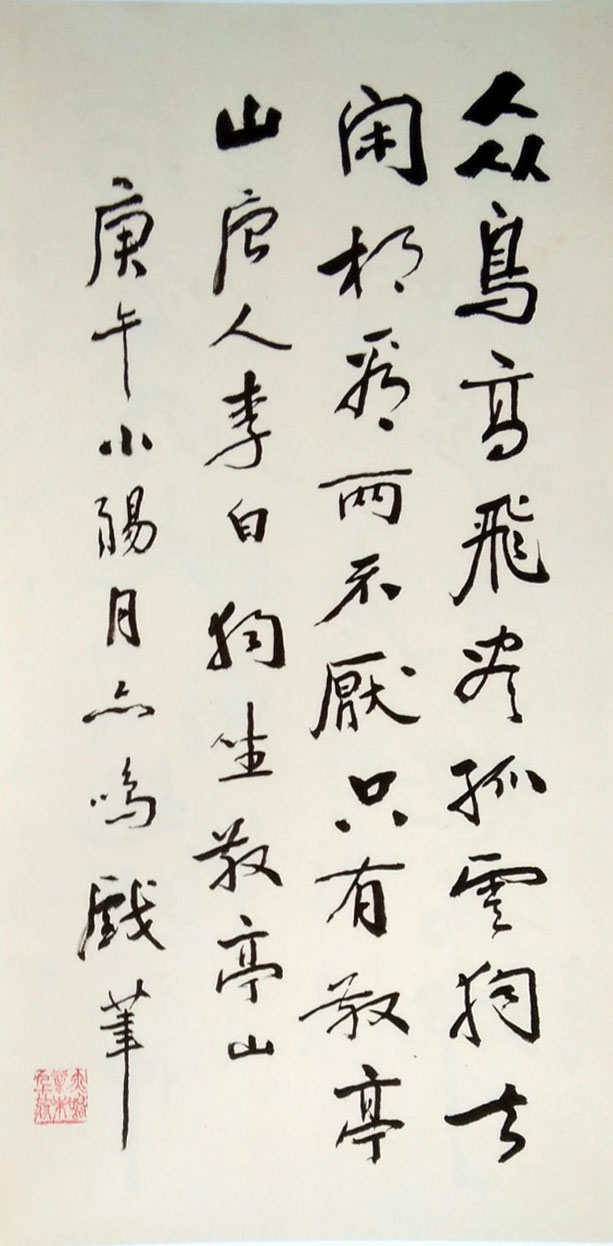 众鳥高飛盡孤雲獨去
闲相看兩不厭只有敬亭
山唐人李白獨坐敬亭山
庚午小陽月亦鳴戲筆